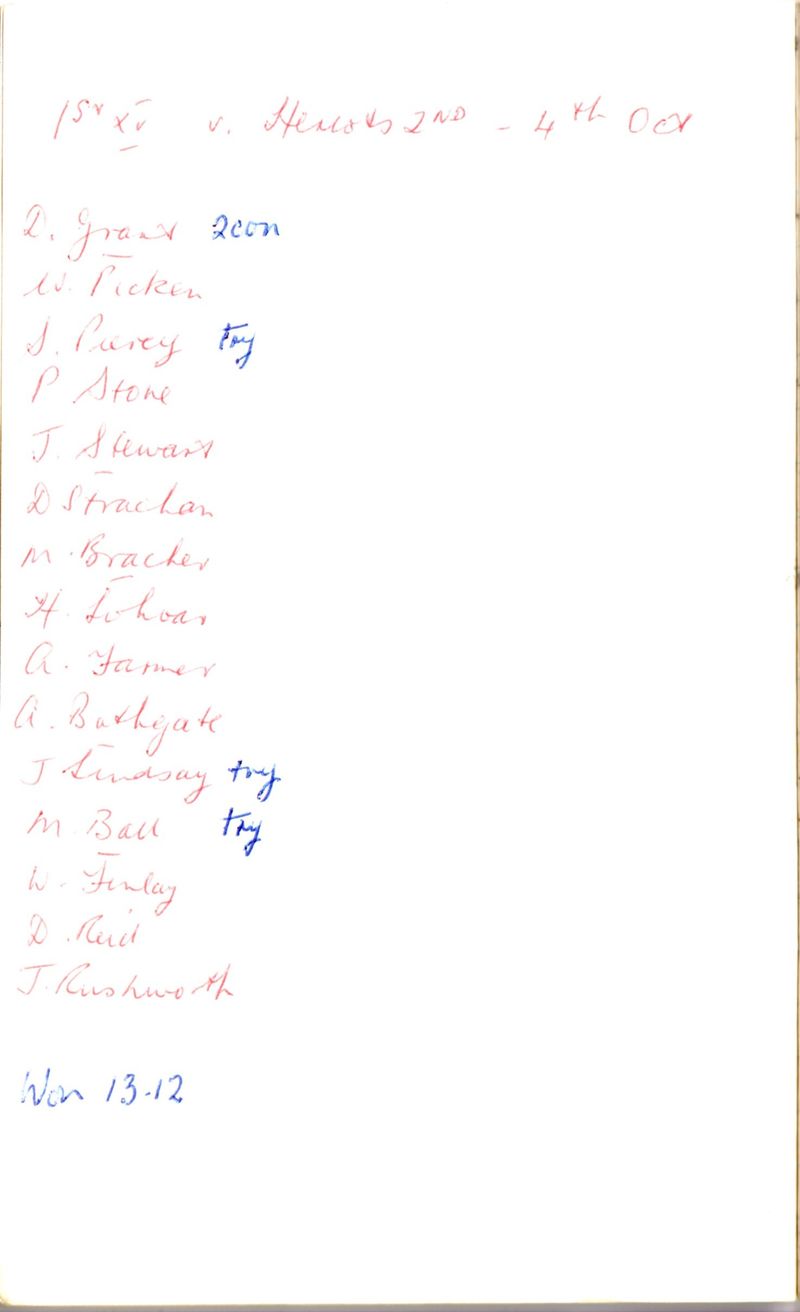 1st XV v. Heriots 2ND - 4th Oct
D. Grant 2con
W. Picken
S. Piercy try
P Stone
J. Stewart
D Strachan
M. Bracher
H.
A. Farmer
A. Bathgate
J Lindsay try
M. Ball try
W. Finlay
D. Reid
J. Rushworth
Won 13-12